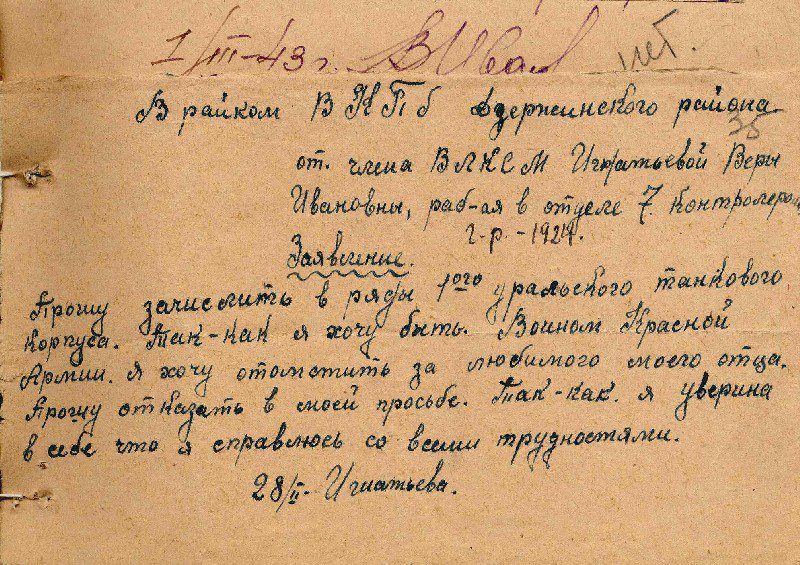 1/III-43 г.
нет.
В райком ВКПб Дзержинского района
35
от. члена ВЛКСМ Игнатьевой Веры
Ивановны, раб-ая в отделе 7. контролером
г.р. - 1924.
Заявление.
Прошу зачислить в ряды 1ого уральского танкового
корпуса. Так-как я хочу быть. Воином Красной
Армии. Я хочу отомстить за любимого моего отца.
Прошу отказать в моей просьбе. Так-как. я уверина
в себе что я справлюсь со всеми трудностями.
28/II- Игнатьева.